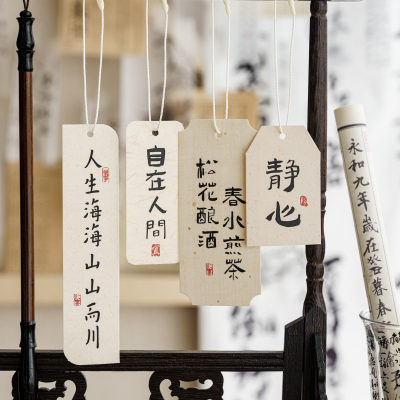 人生海海山山而川
自在人間
松花釀酒
春水煎茶
静心
永和九年歲在癸丑暮春